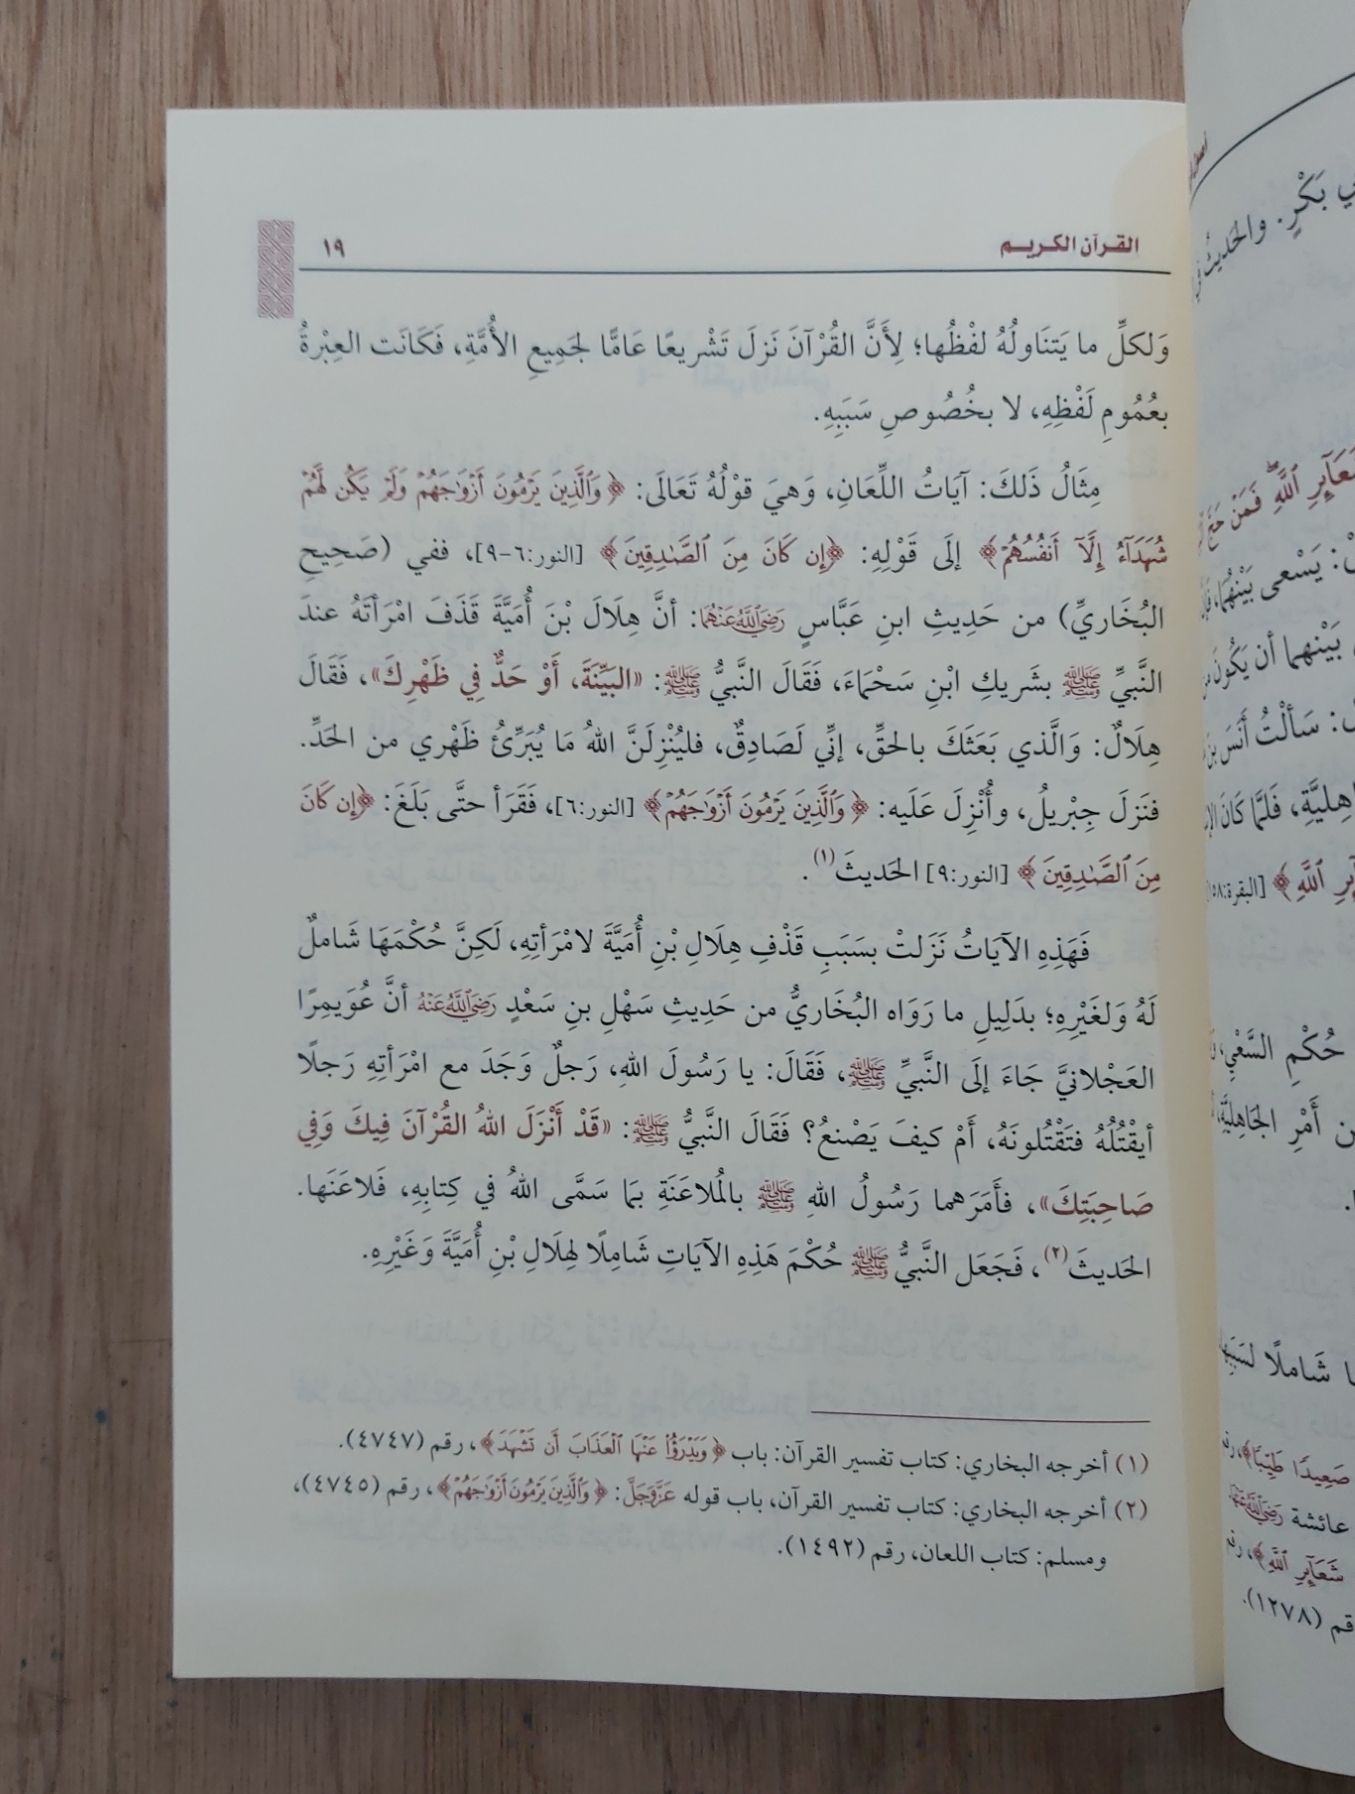 القرآن الكريم ١٩
وَلكلِّ ما يَتنَاولُهُ لفْظُها؛ لِأَنَّ القُرْآنَ نَزلَ تَشْريعًا عَامًّا لجَمِيعِ الأُمَّةِ، فَكَانَت العِبْرةُ
بعُمُومِ لَفْظِهِ، لا بخُصُوصِ سَبَبِهِ.
مِثَالُ ذَلكَ: آيَاتُ اللِّعَانِ، وَهيَ قوْلُهُ تَعَالَى: ﴿وَٱلَّذِينَ يَرْمُونَ أَزْوَٰجَهُمْ وَلَمْ يَكُن لَّهُمْ
شُهَدَآءُ إِلَّآ أَنفُسُهُمْ﴾ إلَى قَوْلِهِ: ﴿إِن كَانَ مِنَ ٱلصَّٰدِقِينَ﴾ [النور:٦-٩]، ففي (صَحِيحِ
البُخَاريِّ) من حَدِيثِ ابنِ عَبَّاسٍ رَضِيَ ٱللَّهُ عَنْهُمَا: أنَّ هِلَالَ بْنَ أُمَيَّةَ قَذَفَ امْرَأتَهُ عندَ
النَّبيِّ ﷺ بشَريكِ ابْنِ سَحْمَاءَ، فَقَالَ النَّبيُّ ﷺ: «البَيِّنَةَ، أَوْ حَدٌّ فِي ظَهْرِكَ»، فَقَالَ
هِلَالٌ: وَالَّذي بَعَثَكَ بالحَقِّ، إنِّي لَصَادِقٌ، فليُنْزِلَنَّ اللهُ مَا يُبَرِّئُ ظَهْري من الحَدِّ.
فنَزَلَ جِبْريلُ، وأُنْزِلَ عَلَيه: ﴿وَٱلَّذِينَ يَرْمُونَ أَزْوَٰجَهُمْ﴾ [النور:٦]، فَقَرَأ حتَّى بَلَغَ: ﴿إِن كَانَ
مِنَ ٱلصَّٰدِقِينَ﴾ [النور:٩] الحَديثَ(١).
فَهَذِهِ الآيَاتُ نَزَلتْ بسَبَبِ قَذْفِ هِلَالِ بْنِ أُمَيَّةَ لامْرَأتِهِ، لَكِنَّ حُكْمَهَا شَاملٌ
لَهُ وَلغَيْرِهِ؛ بدَلِيلِ ما رَوَاه البُخَاريُّ من حَدِيثِ سَهْلِ بنِ سَعْدٍ رَضِيَ ٱللَّهُ عَنْهُ أنَّ عُوَيمِرًا
العَجْلانيَّ جَاءَ إلَى النَّبيِّ ﷺ، فَقَالَ: يا رَسُولَ اللهِ، رَجلٌ وَجَدَ مع امْرَأتِهِ رَجلًا
أيقْتُلُهُ فتَقْتُلونَهُ، أمْ كيفَ يَصْنعُ؟ فَقَالَ النَّبيُّ ﷺ: «قَدْ أَنْزَلَ اللهُ القُرْآنَ فِيكَ وَفِي
صَاحِبَتِكَ»، فأَمَرَهما رَسُولُ اللهِ ﷺ بالمُلاعَنَةِ بمَا سَمَّى اللهُ في كِتابِهِ، فَلاعَنَها.
الحَديثَ(٢)، فَجَعَل النَّبيُّ ﷺ حُكْمَ هَذِهِ الآيَاتِ شَامِلًا لهِلَالِ بْنِ أُمَيَّةَ وَغَيْرِهِ.
(١) أخرجه البخاري: كتاب تفسير القرآن: باب ﴿وَيَدْرَؤُا۟ عَنْهَا ٱلْعَذَابَ أَن تَشْهَدَ﴾، رقم (٤٧٤٧).
(٢) أخرجه البخاري: كتاب تفسير القرآن، باب قوله عَزَّوَجَلَّ: ﴿وَٱلَّذِينَ يَرْمُونَ أَزْوَٰجَهُمْ﴾، رقم (٤٧٤٥)،
ومسلم: كتاب اللعان، رقم (١٤٩٢).
بَكْرٍ. والحَديثُ
شَعَآئِرِ ٱللَّهِ فَمَنْ حَجَّ
يَسْعى بَيْنَهُما،
بَيْنهما أن يَكُونَ
سَألْتُ أَنَسَ بنَ
فَلمَّا كَانَ
ٱللَّهِ﴾ [البقرة:١٥٨]
حُكْمِ السَّعْيِ،
أَمْرِ الجَاهِليَّةِ،
شَاملًا لسَبَبِهَا
صَعِيدًا طَيِّبًا﴾، رقم
عائشة رَضِيَ ٱللَّهُ عَنْهَا
شَعَآئِرِ ٱللَّهِ﴾، رقم
(١٢٧٨).